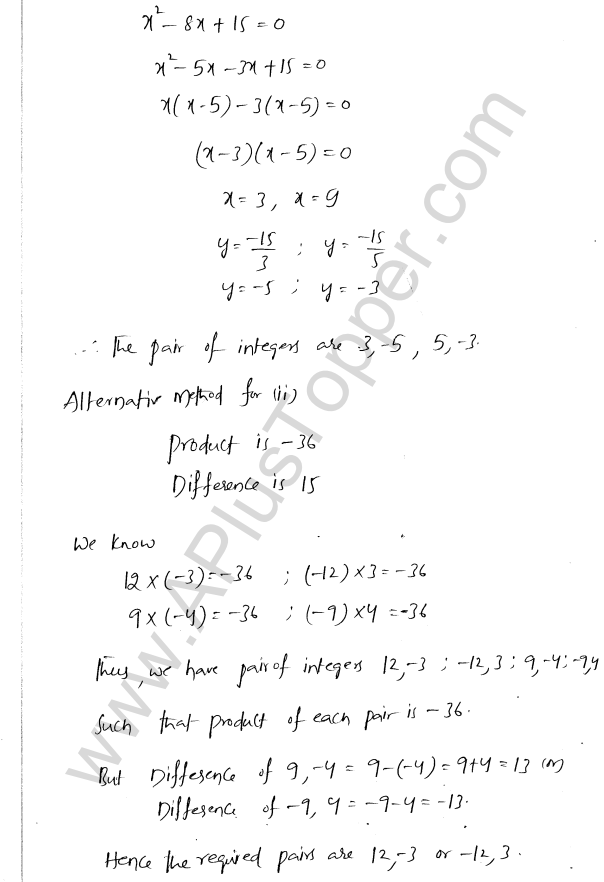 x² - 8x + 15 = 0
x² - 5x - 3x + 15 = 0
x(x-5) - 3(x-5) = 0
(x-3)(x-5) = 0
x = 3, x = 9
y = -15/3 ; y = -15/5
y = -5 ; y = -3
∴ The pair of integers are 3,-5, 5,-3.
Alternativ method for (ii)
Product is -36
Difference is 15
We know
12 x (-3) = -36 ; (-12) x 3 = -36
9 x (-4) = -36 ; (-9) x 4 = -36
Thus, we have pair of integers 12,-3 ; -12,3 ; 9,-4 ; -9,4
Such that product of each pair is -36.
But Difference of 9,-4 = 9-(-4) = 9+4 = 13 (or)
Difference of -9, 4 = -9-4 = -13.
Hence the required pairs are 12,-3 or -12, 3.
www.APlusTopper.com